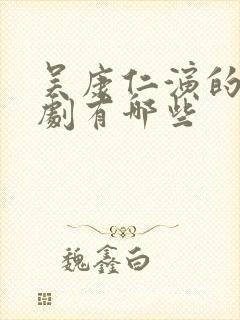 吴康仁演的
劇有哪些
魏鑫白